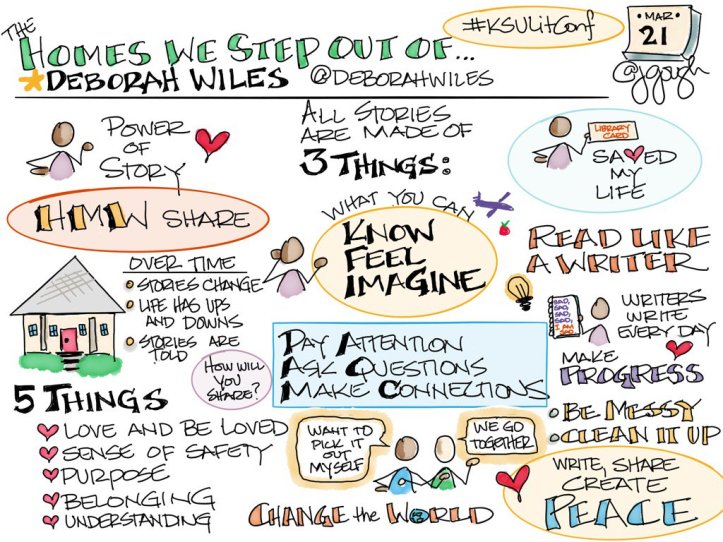 THE
HOMES WE STEP OUT OF...
#KSULitConf
MAR
21
DEBORAH WILES @DEBORAHWILES
@jgough
POWER
OF
STORY
ALL STORIES
ARE MADE OF
3 THINGS:
LIBRARY
CARD
SAVED
MY
LIFE
HMW SHARE
WHAT YOU CAN
KNOW
FEEL
IMAGINE
READ LIKE
A WRITER
OVER TIME
STORIES CHANGE
LIFE HAS UPS
AND DOWNS
STORIES ARE
TOLD
HOW WILL
YOU
SHARE?
SAD,
SAD,
SAD,
SAD,
I AM
SAD
WRITERS
WRITE
EVERY DAY
PAY ATTENTION
ASK QUESTIONS
MAKE CONNECTIONS
MAKE
PROGRESS
BE MESSY
CLEAN IT UP
5 THINGS
LOVE AND BE LOVED
SENSE OF SAFETY
PURPOSE
BELONGING
UNDERSTANDING
WANT TO
PICK IT
OUT
MYSELF
WE GO
TOGETHER
CHANGE the WORLD
WRITE, SHARE
CREATE
PEACE